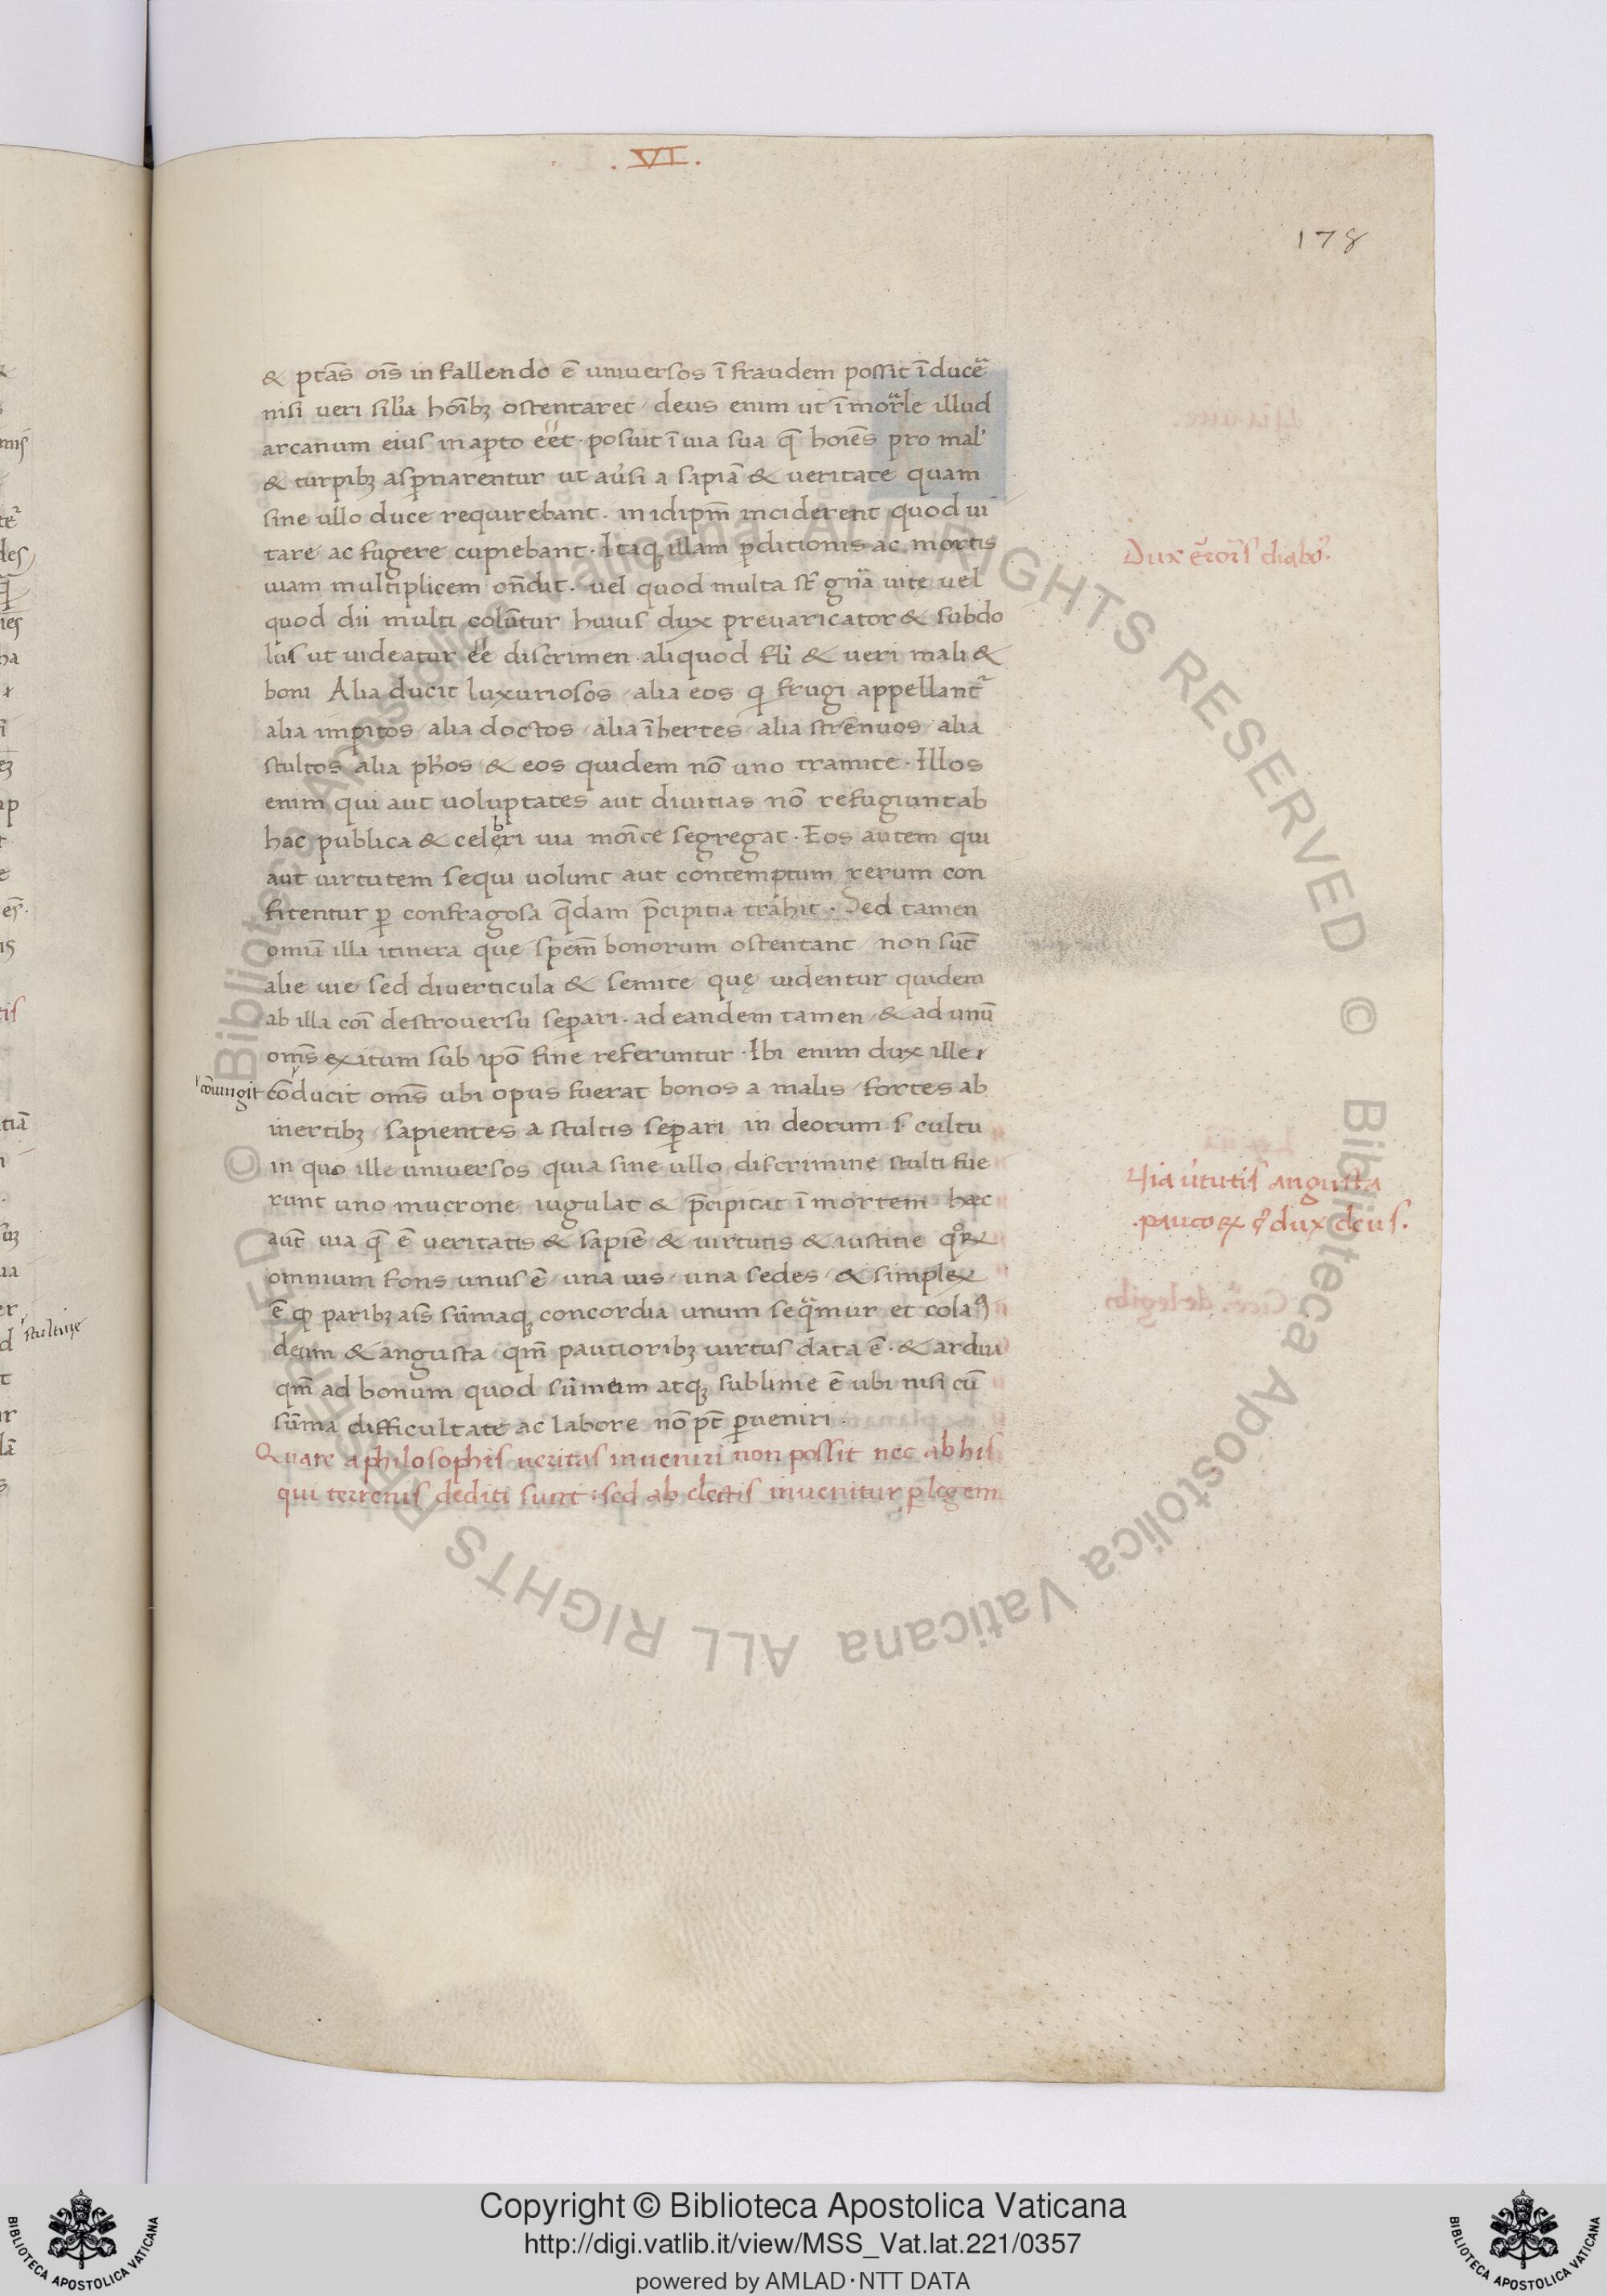 . VI .
178
& ptãs oı̃s in fallendo ẽ universos ĩ fraudem possit ĩducẽ
nisi veri silia hoı̃bꝫ ostentaret / deus enim ut ĩmorͣle illud
arcanum eius inapto eẽt · posuit ĩ via sua q̃ hoiẽs pro mal'
& turpibꝫ asp̱narentur ut av̓si a sapiã & veritate quam
sine ullo duce requirebant · in idip̃m inciderent quod vi
tare ac fugere cupiebant · Itaqꝫ illam ꝑditionis ac mortis
viam multiplicem oñdit · vel quod multa st̃ gña vite vel
quod dii multi colũtur huius dux prevaricator & subdo
lus ut videatur eẽ discrimen aliquod fl̃i & veri mali &
boni Alia ducit luxuriosos / alia eos q frugi appellant̃
alia impitos / alia doctos / alia ĩhertes / alia strẽnuos / alia
stultos / alia ph̃os & eos quidem nõ uno tramite · Illos
enim qui aut voluptates aut divitias nõ refugiunt ab
hac publica & celeri via moı̃te segregat · Eos autem qui
aut virtutem sequi volunt aut contemptum rerum con
fitentur ꝑ confragosa q̃dam p̃cipitia trahit · Sed tamen
omı̃a illa itinera que spem̃ bonorum ostentant non sũt
alie vie sed diverticula & semite quę videntur quidem
ab illa coı̃ destroversu seꝑari · ad eandem tamen & ad unũ
oms̃ exitum sub ip̃o fine referuntur · Ibi enim dux ille
cõiungit
cõducit oms̃ ubi opus fuerat bonos a malis / fortes ab
inertibꝫ / sapientes a stultis seꝑari in deorum · s · cultu
in quo ille universos quia sine ullo discrimine stulti fue
runt uno mucrone iugulat & p̃cipitat ĩ mortem hęc
aut̃ via q̃ ẽ veritatis & sapiẽ & virtutis & iustitie qͦꝝ
omnium fons unus ẽ / una vis / una sedes / & simplex
ẽ ꝙ paribꝫ aı̃s sũmaqꝫ concordia unum seqͣmur et colaꝰ
deum & angusta / qm̃ pautioribꝫ virtus data ẽ · & ardua
qm̃ ad bonum quod sũmum atqꝫ sublime ẽ ubi nisi cũ
sũma difficultate ac labore nõ pt̃ ꝑveniri ·
Quare a philosophis veritas inveniri non possit nec ab his
qui terrenis dediti sunt : sed ab electis invenitur ꝑ legem
Dux er̃oris diabo ·
Via v̓tutis angusta
· paucoꝝ dux deus ·
stultitie
Copyright © Biblioteca Apostolica Vaticana
http://digi.vatlib.it/view/MSS_Vat.lat.221/0357
powered by AMLAD·NTT DATA
BIBLIOTECA APOSTOLICA VATICANA
BIBLIOTECA APOSTOLICA VATICANA
© Biblioteca Apostolica Vaticana ALL RIGHTS RESERVED © Biblioteca Apostolica Vaticana ALL RIGHTS RESERVED